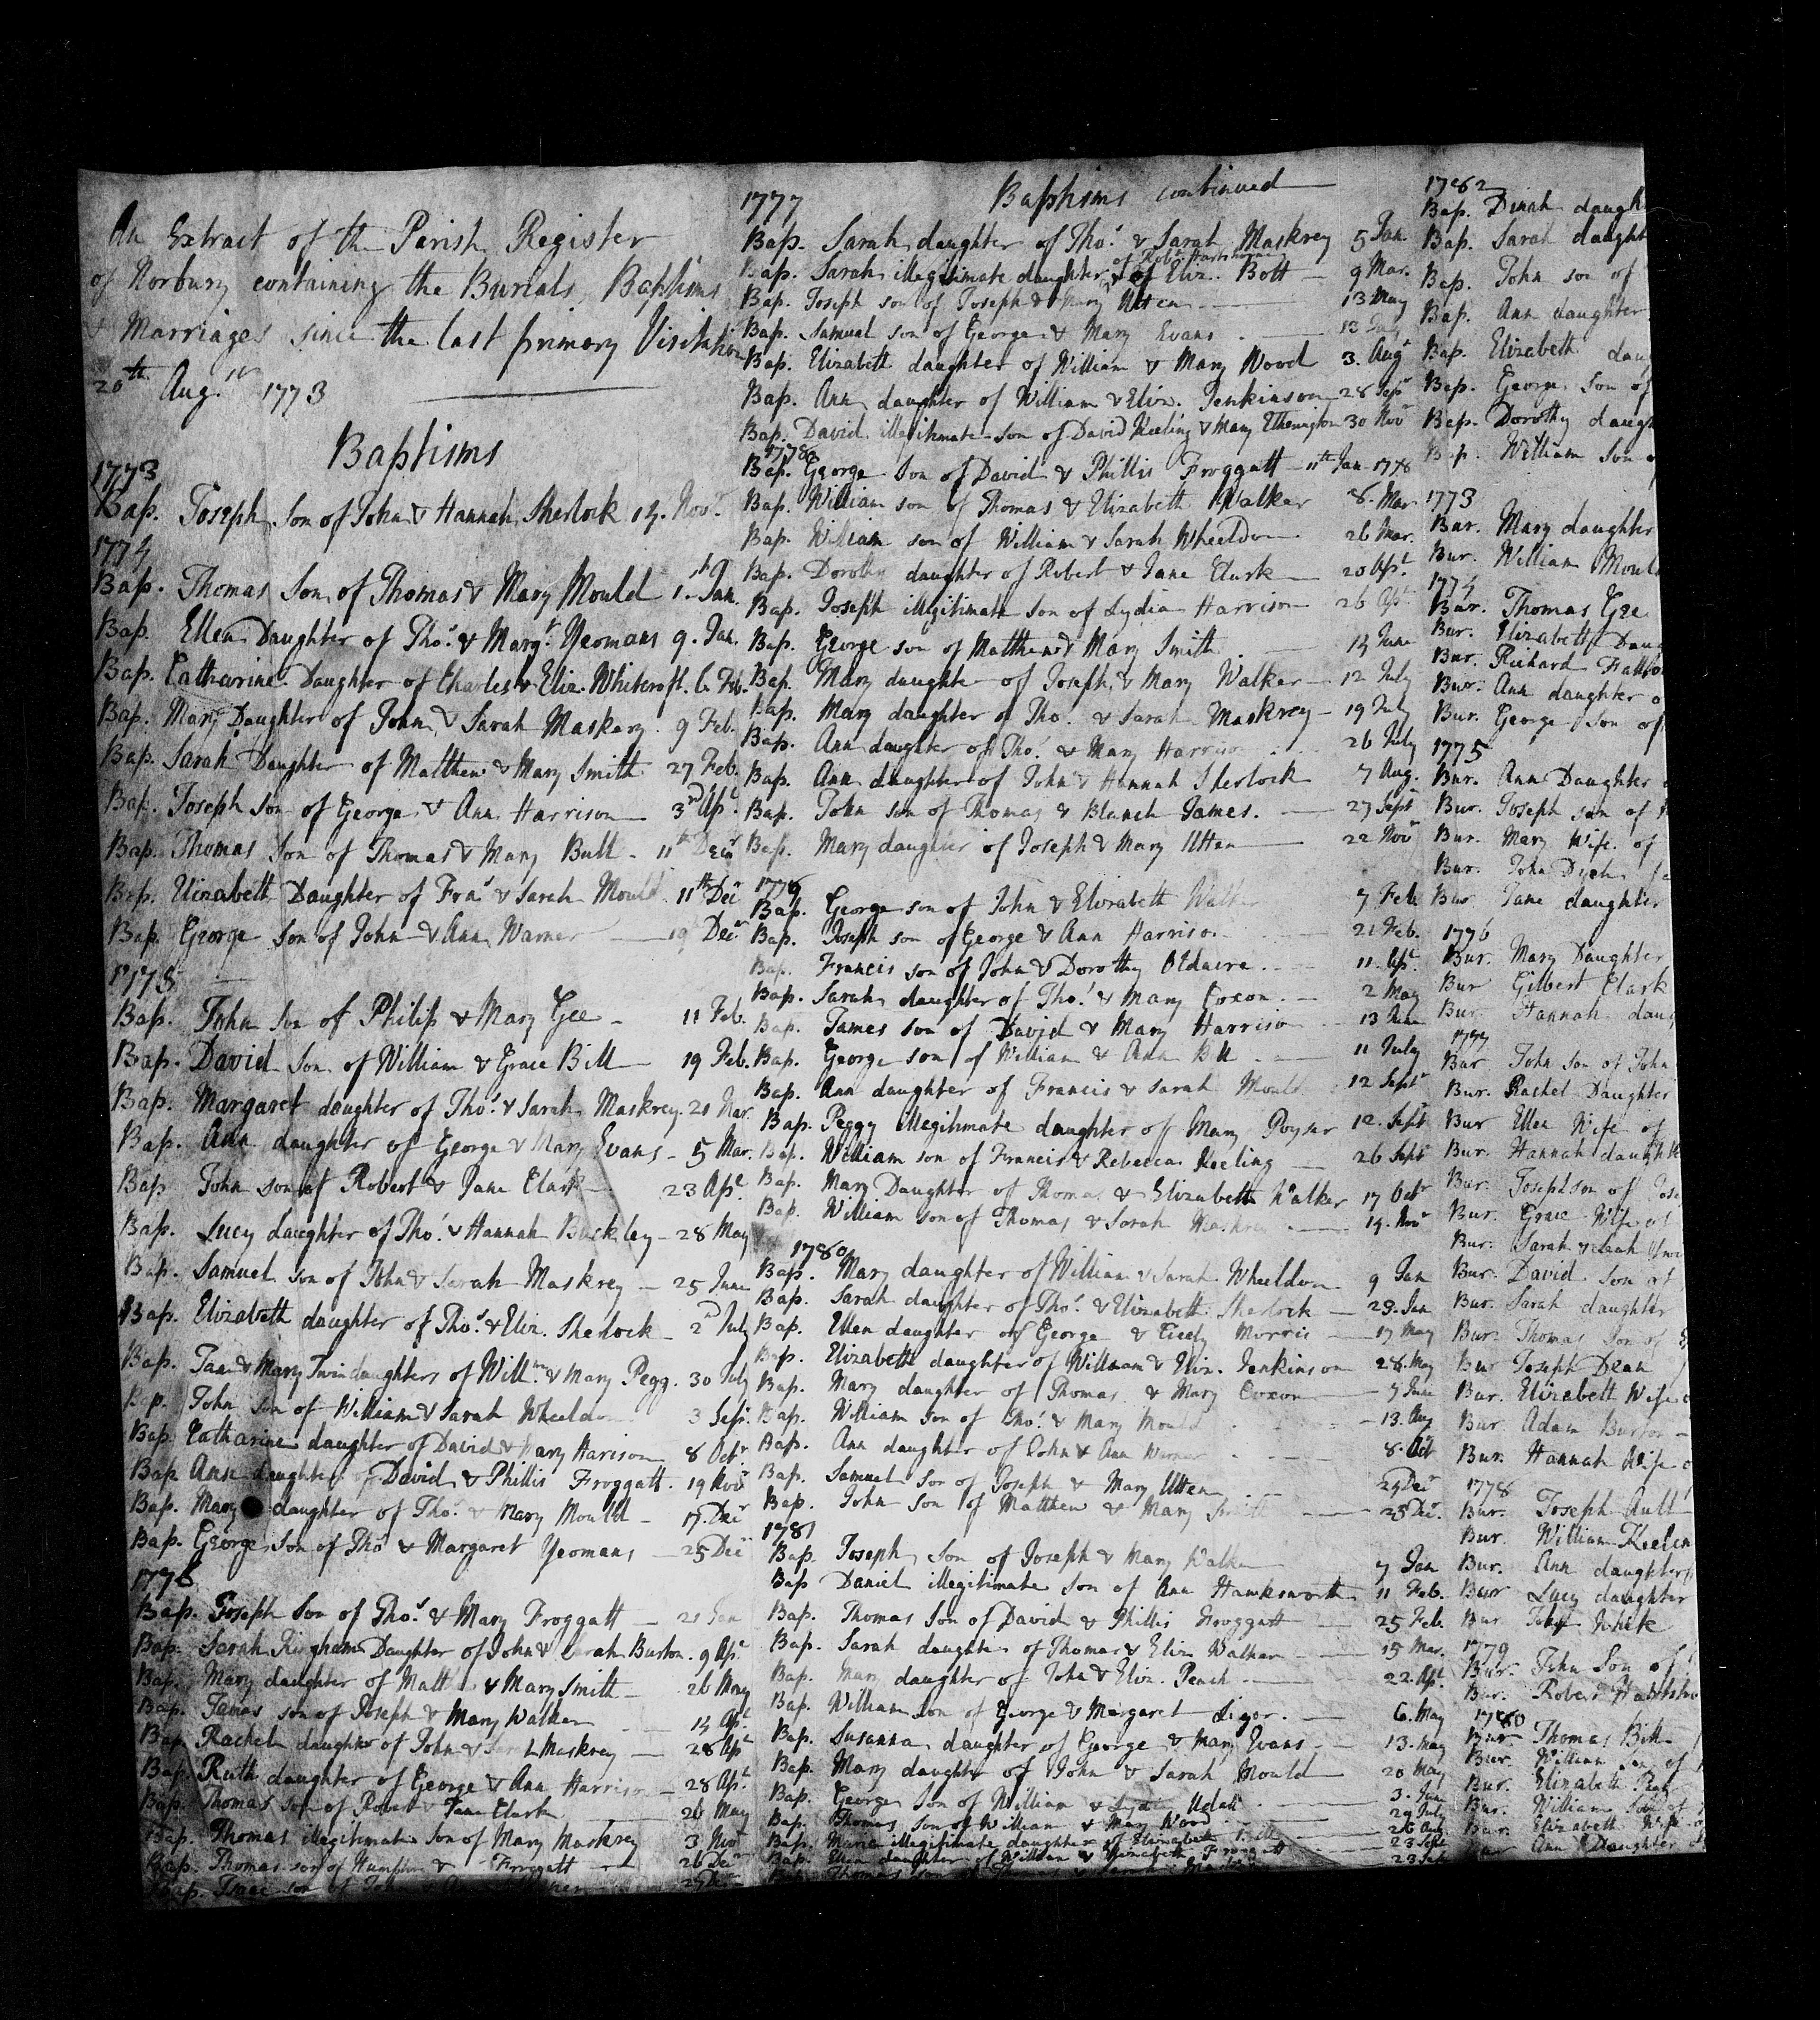 An Extract of the Parish Register
of Norbury containing the Burials, Baptisms
& Marriages since the last primary Visitation
20th Augst 1773
Baptisms
1773
Bap. Joseph Son of John & Hannah Sherlock 14. Novr
1774
Bap. Thomas Son of Thomas & Mary Mould 1st Jan.
Bap. Ellen Daughter of Thos & Margt Yeomans 9. Jan.
Bap. Catharine Daughter of Charles & Eliz. Whitcroft. 6. Feb.
Bap. Mary Daughter of John & Sarah Maskery. 9 Feb.
Bap. Sarah Daughter of Matthew & Mary Smith 27 Feb.
Bap. Joseph son of George & Ann Harrison 3rd Apl
Bap. Thomas Son of Thomas & Mary Bull - 11th Decr
Bap. Elizabeth Daughter of Fras & Sarah Mould. 11th Decr
Bap. George Son of John & Ann Warner 19 Decr
1775
Bap. John Son of Philip & Mary Gee - 11 Feb.
Bap. David Son of William & Grace Bill 19 Feb.
Bap. Margaret daughter of Thos & Sarah Maskrey. 21 Mar.
Bap. Ann daughter of George & Mary Evans - 5 Mar.
Bap John son of Robert & Jane Clark 23 Apl
Bap. Lucy daughter of Thos & Hannah Buckley - 28 May
Bap. Samuel son of John & Sarah Maskrey - 25 June
Bap. Elizabeth daughter of Thos & Eliz. Sherlock - 2d July
Bap. Jane & Mary Twin daughters of Willm & Mary Pegg. 30 July
Bap. John Son of William & Sarah Wheeldon 3 Sepr
Bap. Catharine daughter of David & Mary Harison 8 Octr
Bap Ann daughter of David & Phillis Froggatt. 19 Novr
Bap. Mary daughter of Thos & Mary Mould - 17. Decr
Bap. George Son of Thos & Margaret Yeomans - 25 Decr
1776
Bap. Joseph Son of Thos & Mary Froggatt - 21 Jan
Bap. Sarah Daughter of John & Sarah Burton. 9 Apl
Bap. Mary daughter of Matt & Mary Smith - 26 May
Bap. James son of Joseph & Mary Walker 14 Apl
Bap. Rachel daughter of John & Sarah Maskrey - 28 Apl
Bap Ruth daughter of George & Ann Harrison - 28 Apl
Bap. Thomas son of Robert & Jane Clark 26 May
Bap. Thomas illegitimate Son of Mary Maskrey 3 Novr
Bap. Thomas son of & Froggatt 26 Decr
Bap. Isaac son of John &
1777 Baptisms continued
Bap. Sarah daughter of Thos & Sarah Maskrey 5 Jan.
Bap. Sarah illegitimate daughter of Robt Hartshorne & of Eliz. Bott - 9 Mar.
Bap. Joseph son of Joseph & Mary Utten 13 May
Bap. Samuel son of George & Mary Evans 13 July
Bap. Elizabeth daughter of William & Mary Wood 3. Augt
Bap. Ann daughter of William & Eliz. Jenkinson 28 Sepr
Bap. David illegitimate son of David Keeling & Mary Etherington 30 Novr
1778
Bap. George Son of David & Phillis Froggatt - 11th Jan 1778
Bap. William son of Thomas & Elizabeth Walker 8. Mar
Bap. William son of William & Sarah Wheeldon 26 Mar.
Bap. Dorothy daughter of Robert & Jane Clark 20 Apl
Bap. Joseph illegitimate Son of Lydia Harrison 26 Apl
Bap. George son of Matthew & Mary Smith 14 June
Bap. Mary daughter of Joseph & Mary Walker - 12 July
Bap. Mary daughter of Tho. & Sarah Maskrey - 19 July
Bap. Ann daughter of Thos & Mary Harrison 26 July
Bap. Ann daughter of John & Hannah Sherlock 7 Aug.
Bap. John son of Thomas & Blanch James. 27 Sept
Bap. Mary daughter of Joseph & Mary Utten 22 Novr
1779
Bap. George son of John & Elizabeth Walker 7 Feb.
Bap. Joseph son of George & Ann Harrison 21 Feb.
Bap. Francis son of John & Dorothy Oldacre. 11. Apl
Bap. Sarah daughter of Thos & Mary Coxon. - 2 May
Bap. James son of David & Mary Harrison 13 June
Bap. George son of William & Ann Bill 11 July
Bap. Ann daughter of Francis & Sarah Mould 12 Septr
Bap. Peggy illegitimate daughter of Mary Poyser 12. Sept
Bap. William son of Francis & Rebecca Keeling 26 Sept
Bap. Mary Daughter of Thomas & Elizabeth Walker 17 Octr
Bap. William son of Thomas & Sarah Maskrey 14. Novr
1780
Bap. Mary daughter of William & Sarah Wheeldon 9 Jan
Bap. Sarah daughter of Thos & Elizabeth Sherlock - 23. Jan
Bap. Ellen daughter of George & Cicely Morris 17 May
Bap. Elizabeth daughter of William & Eliz. Jenkinson 28. May
Bap. Mary daughter of Thomas & Mary Coxon 7 June
Bap. William Son of Thos & Mary Mould 13. Aug
Bap. Ann daughter of John & Ann Warner 8. Octr
Bap. Samuel Son of Joseph & Mary Utten 24 Decr
Bap. John son of Matthew & Mary Smith 25 Decr
1781
Bap. Joseph Son of Joseph & Mary Walker 7 Jan
Bap Daniel illegitimate Son of Ann Hawksworth 11 Feb.
Bap. Thomas Son of David & Phillis Froggatt 25 Feb.
Bap. Sarah daughter of Thomas & Eliz Walker 15 Mar.
Bap. Mary daughter of John & Eliz. Peach 22. Apl
Bap. William Son of George & Margaret 6. May
Bap. Susanna daughter of George & Mary Evans 13. May
Bap. Mary daughter of John & Sarah Mould 20 May
Bap. George Son of William & Lydia Udall 3. June
Bap. Thomas son of William & Mary Wood 29 July
Bap. Maria illegitimate daughter of Elizabeth 26 Aug
Bap. Ellen daughter of William & Elizabeth Froggatt 23 Sept
Bap. Thomas Son of 23 Sep
1782
Bap. Dinah daugh
Bap. Sarah daught
Bap. John son of
Bap. Ann daughter
Bap. Elizabeth daug
Bap. George Son of
Bap. Dorothy daugh
Bap. William Son o
1773
Bur. Mary daughter
Bur. William Mould
1774
Bur. Thomas Gee
Bur. Elizabeth Daug
Bur. Richard
Bur. Ann daughter o
Bur. George Son of
1775
Bur. Ann Daughter
Bur. Joseph son of
Bur. Mary Wife of
Bur. John
Bur Jane daughter
1776
Bur. Mary Daughter
Bur Gilbert Clark
Bur. Hannah daug
1777
Bur John son of John
Bur. Rachel Daughter
Bur Ellen Wife of
Bur. Hannah daught
Bur. Joseph son of Jose
Bur. Grace Wife of
Bur. Sarah & Leah
Bur. David Son of
Bur. Sarah daughter
Bur. Thomas Son of
Bur Joseph Dean
Bur. Elizabeth Wife
Bur. Adam Burton -
Bur. Hannah Wife
1778
Bur. Joseph Ault
Bur. William Keelin
Bur. Ann daughter
Bur Lucy daughter
Bur John White
1779
Bur. John Son of
Bur. Robert Hartshor
1780
Bur Thomas Bill
Bur. William Son of
Bur. Elizabeth
Bur. William Son of
Bur. Elizabeth Wife
Bur Ann Daughter